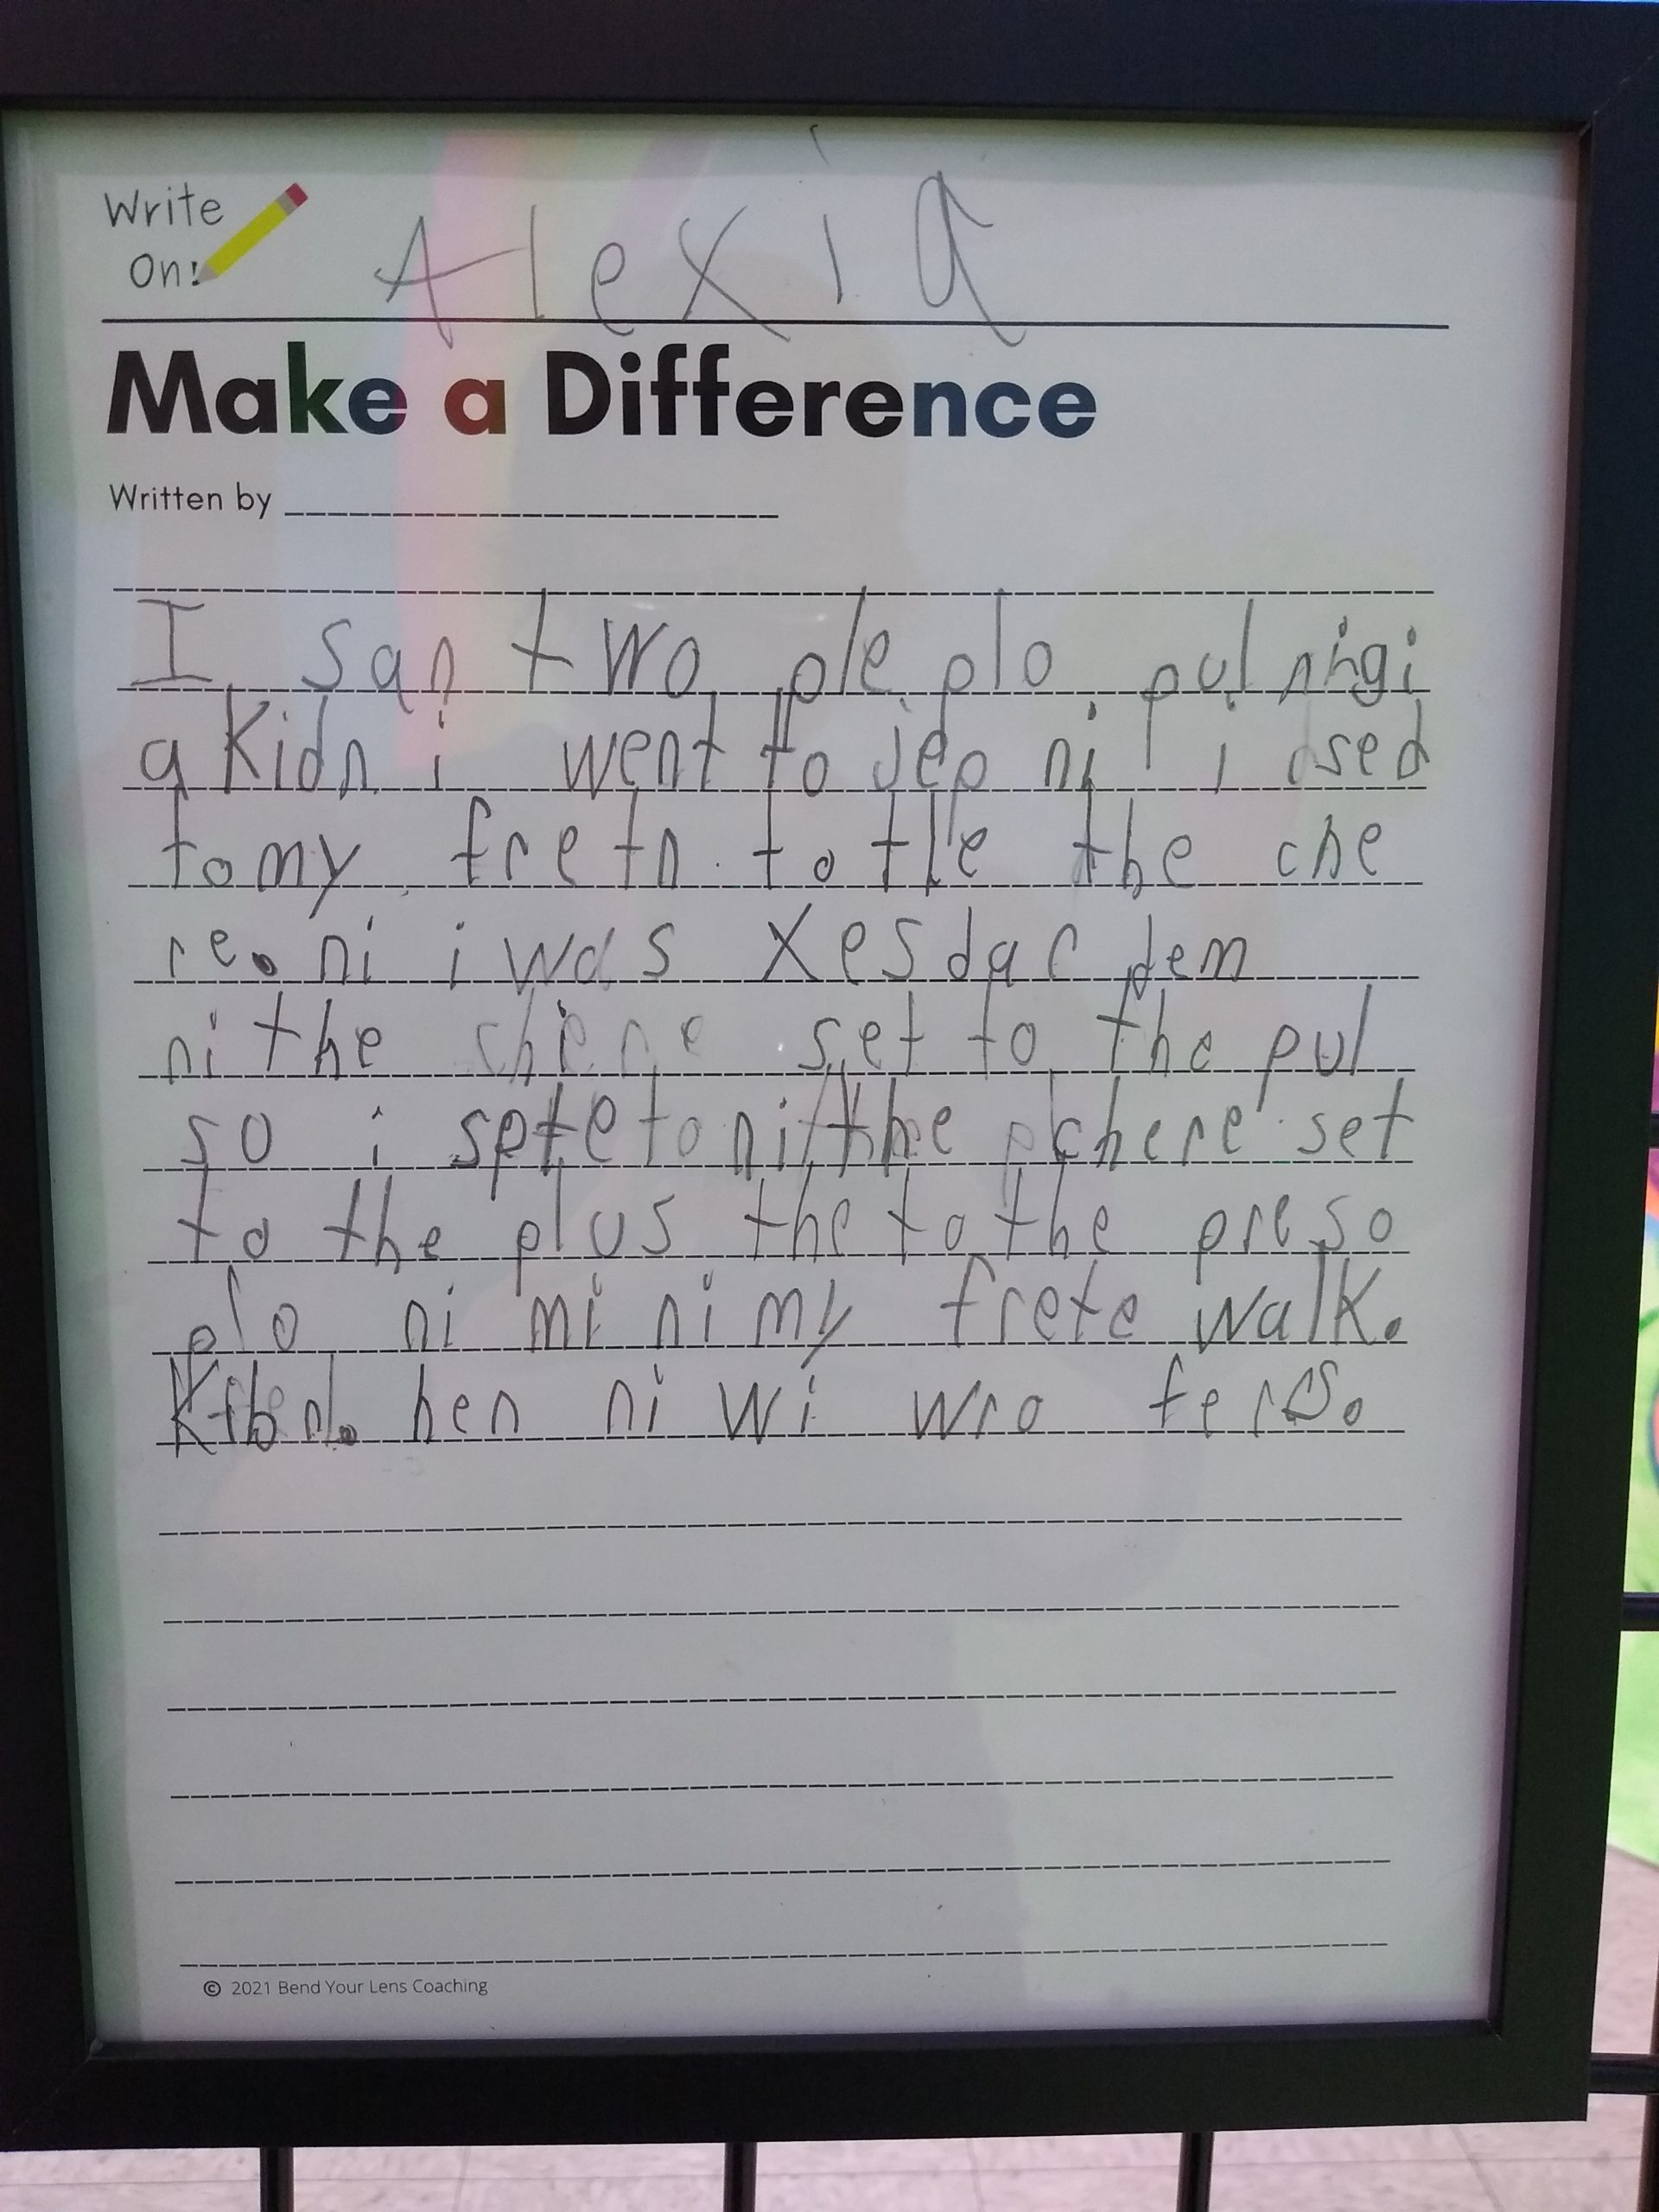 Write
On!
Alexia
Make a Difference
Written by
I san two ple plo pul nigi
a Kidn i went to jep ni i osed
to my fretn to tle the che
re. ni i was xesdar dem
ni the chere set to the pul
so i spte to ni the chere set
to the plus the to the preso
plo ni mi ni my frete walk.
hen ni wi wro fers.
© 2021 Bend Your Lens Coaching